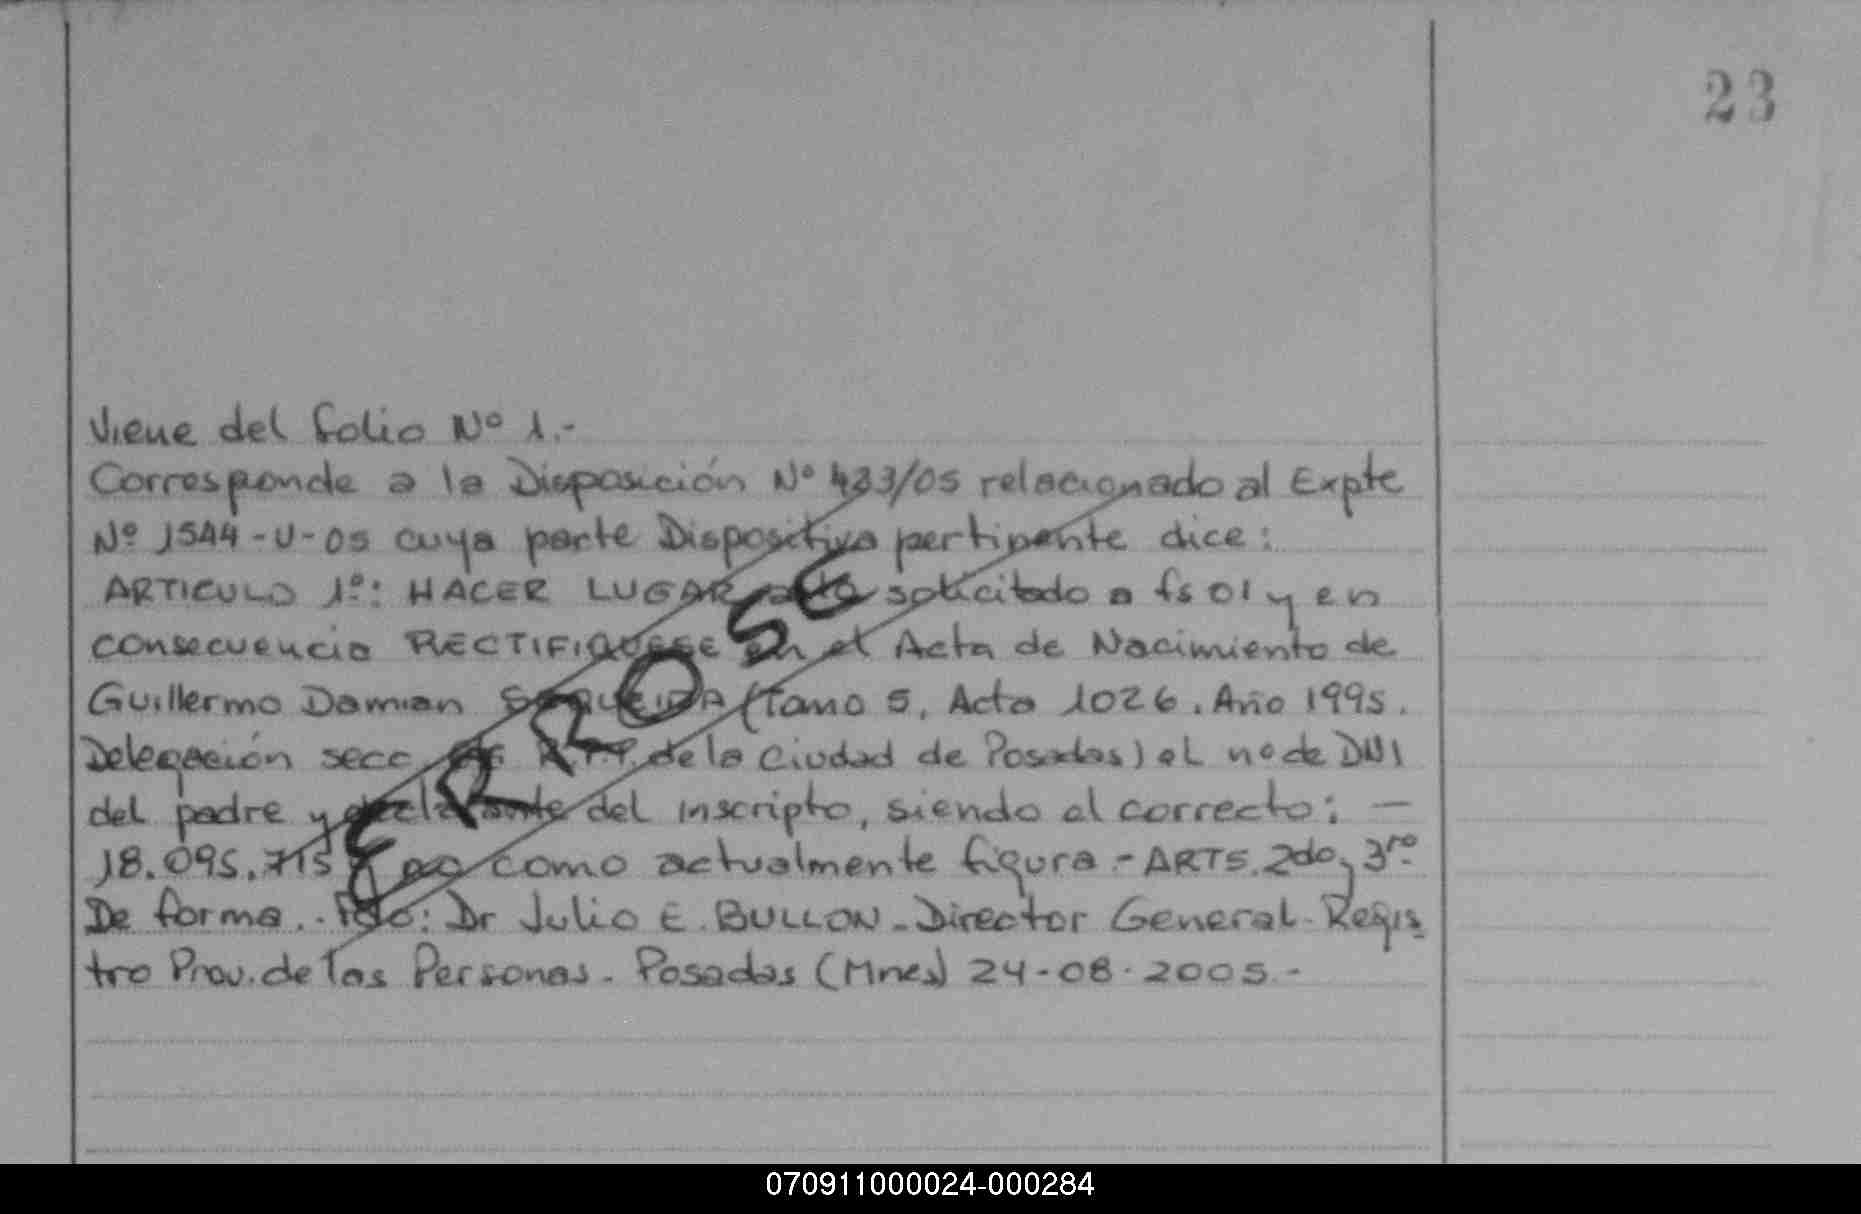 23
Viene del folio Nº 1.-
Corresponde a la Disposición Nº 433/05 relacionado al Expte
Nº 1544-U-05 cuya parte Dispositiva pertinente dice:
ARTICULO 1º: HACER LUGAR a lo solicitado a fs 01 y en
consecuencia RECTIFIQUESE en el Acta de Nacimiento de
Guillermo Damian (Tomo 5, Acta 1026. Año 1995.
Delegación secc de la Ciudad de Posadas) el nº de DNI
del padre y declarante del inscripto, siendo el correcto: —
18.095.715 y no como actualmente figura.- ARTS. 2do y 3ro
De forma.- Fdo: Dr Julio E. BULLON - Director General - Regis
tro Prov. de las Personas - Posadas (Mnes) 24-08-2005.-
ERROSE
070911000024-000284